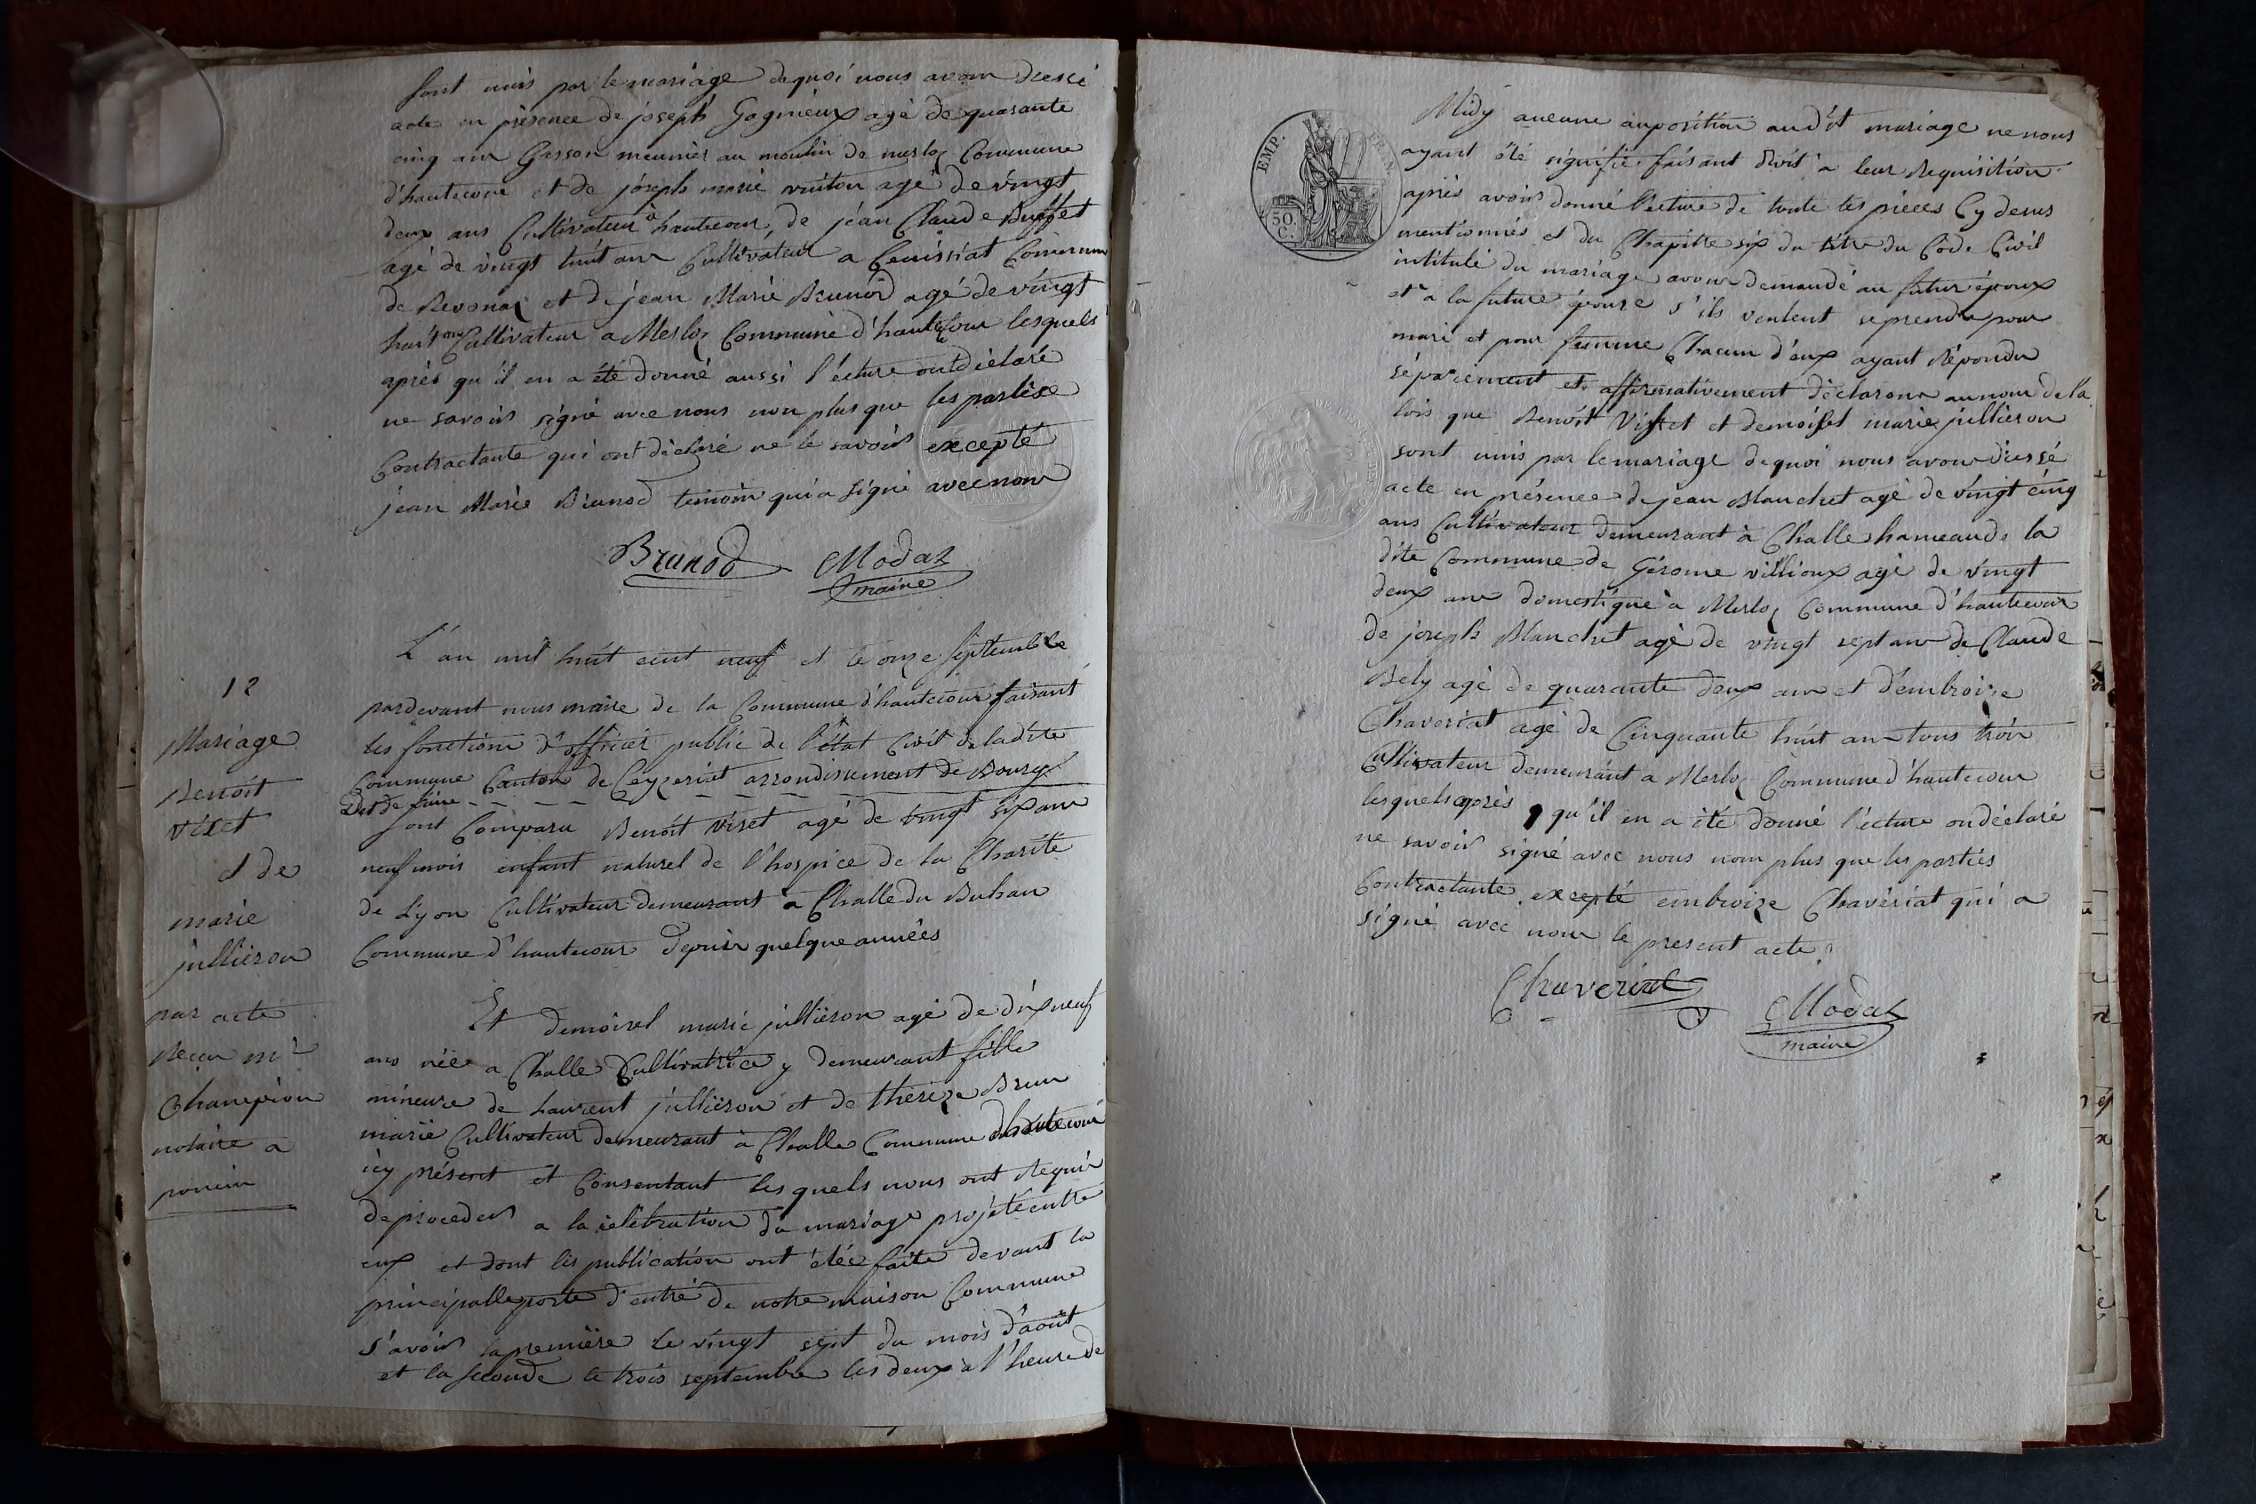 sont unis par le mariage de quoi nous avons dressé
acte en présence de joseph Gagnieux agé de quarante
cinq ans Garson meunier au moulin de merloz Commune
d'hautecour et de joseph marie vuiton agé de vingt
deux ans Cultivateur à hautecour, de jean Claude Buffet
agé de vingt huit ans Cultivateur a Ceuissiat Commune
de Revonaz et de jean Marie Brunod agé de vingt
huit ans Cultivateur a Merloz Commune d'hautecour lesquels
après qu'il en a été donné aussi l'ecture ont déclaré
ne savoir signé avec nous non plus que les parties
Contractante qui ont déclaré ne le savoir excepté
jean Marie Brunod temoin qui a signé avec nous
Brunod Modaz
maire
12
Mariage
Benoit
viset
et de
marie
jullieron
par acte
Recu mr
Champion
notaire a
poncin
L'an mil huit cent neuf et le onze septembre
pardevant nous maire de la Commune d'hautecour faisant
les fonctions d'officier public de l'état Civil de ladite
Commune Canton de Ceyzeriat arrondissement de Bourg
Det de
sont Comparu Benoit viset agé de vingt six ans
neuf mois enfant naturel de l'hospice de la Charité
de Lyon Cultivateur demeurant à Challe du Buhan
Commune d'hautecour depuis quelque années
Et demoisel marie jullieron agé de dix neuf
ans née a Challe Cultivatrice y demeurant fille
mineure de Laurent jullieron et de thérèze Brun
marié Cultivateur demeurant à Challe Commune d'hautecour
icy présent et Consentant les quels nous ont Requis
de proceder a la célébration du mariage projété entre
eux et dont les publication ont étée faite devant la
principalle porte d'entré de notre maison Commune
s'avoir la première le vingt sept du mois d'août
et la seconde le trois septembre les deux à l'heure de
EMP. FRAN.
50.
C.
Midy aucune aupposition audit mariage ne nous
ayant été signifié faisant droit a leur Réquisition
après avoir donné l'ecture de toute les pièces Cy desus
mentionnés et du Chapitre six du titre du Code Civil
intitulé du mariage avons demandé au futur époux
et à la future épouse s'ils veulent se prendre pour
mari et pour femme Chacun d'eux ayant Répondu
séparément et affirmativement déclarons au nom de la
lois que Benoit Viset et demoisel marie jullieron
sont unis par le mariage de quoi nous avons dressé
acte en présence de jean Blanchet agé de vingt cinq
ans Cultivateur demeurant à Challe hameau de la
dite Commune de Gérome villioux agé de vingt
deux ans domestique à Merloz Commune d'hautecour
de joseph Blanchet agé de vingt sept ans de Claude
Bely agé de quarante deux ans et d'embroize
Chaveriat agé de Cinquante huit ans tous trois
Cultivateur demeurant a Merloz Commune d'hautecour
lesquels après qu'il en a été donné l'ecture on déclaré
ne savoir signé avec nous nom plus que les parties
Contractante excepté embroize Chavériat qui a
signé avec nous le present acte.
Chaveriat
Modaz
maire